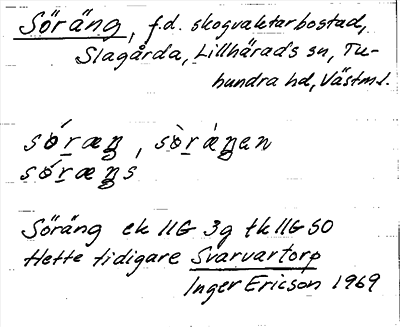 Söräng, f.d. skogvaktarbostad,
Slagårda, Lillhärads sn, Tu-
hundra hd, Västml.
só̱ræŋ, sò̱ráŋen
só̱ræŋs
Söräng ek 11G 3g tk 11G SO
Hette tidigare Svarvartorp
Inger Ericson 1969